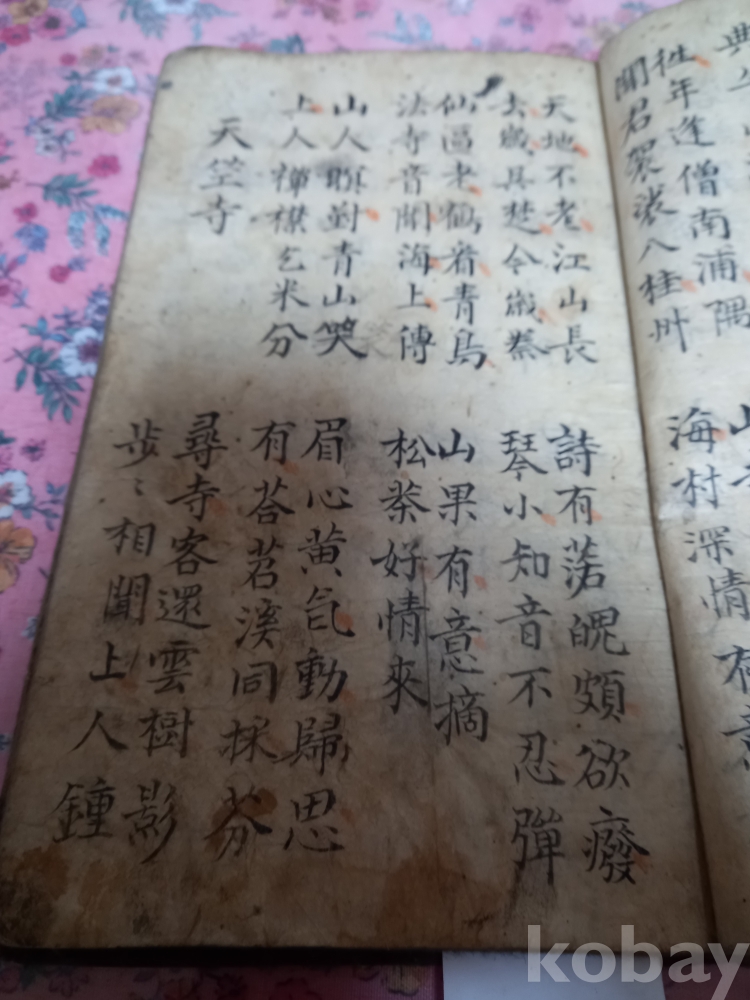 往年逢僧南浦隅
聞君袈裟八桂州
海村深情有意
天地不老江山長
去歲具楚今歲蔡
仙區老鶴看青鳥
法寺音聞海上傳
山人瞑對青山笑
上人禪襟乞米分
天竺寺
詩有落魄頗欲癈
琴小知音不忍彈
山果有意摘
松茶好情來
眉心黃氣動歸思
有荅苕溪同採芬
尋寺客還雲樹影
步〻相聞上人鍾
kobay